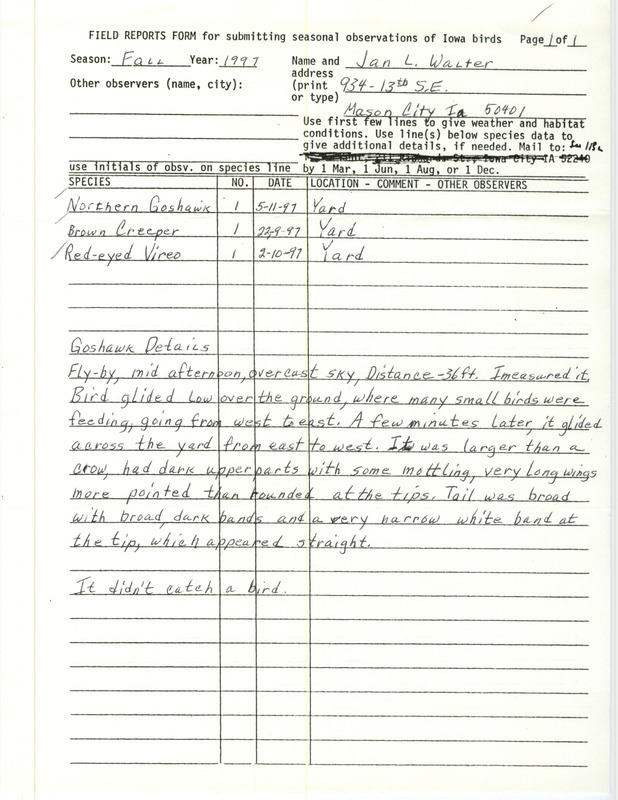 FIELD REPORTS FORM for submitting seasonal observations of Iowa birds Page 1 of 1
Season: Fall Year: 1997 Name and Jan L. Walter
address
Other observers (name, city): (print 934-13th S.E.
or type)
Mason City Ia 50401
Use first few lines to give weather and habitat
conditions. Use line(s) below species data to
give additional details, if needed. Mail to:
Iowa City IA 52240
use initials of obsv. on species line by 1 Mar, 1 Jun, 1 Aug, or 1 Dec.
SPECIES NO. DATE LOCATION - COMMENT - OTHER OBSERVERS
Northern Goshawk 1 5-11-97 Yard
Brown Creeper 1 22-9-97 Yard
Red-eyed Vireo 1 2-10-97 Yard
Goshawk Details
Fly-by, mid afternoon, overcast sky, Distance -36ft. I measured it.
Bird glided low over the ground, where many small birds were
feeding, going from west to east. A few minutes later, it glided
across the yard from east to west. It was larger than a
crow, had dark upper parts with some mottling, very long wings
more pointed than rounded at the tips. Tail was broad
with broad, dark bands and a very narrow white band at
the tip, which appeared straight.
It didn't catch a bird.